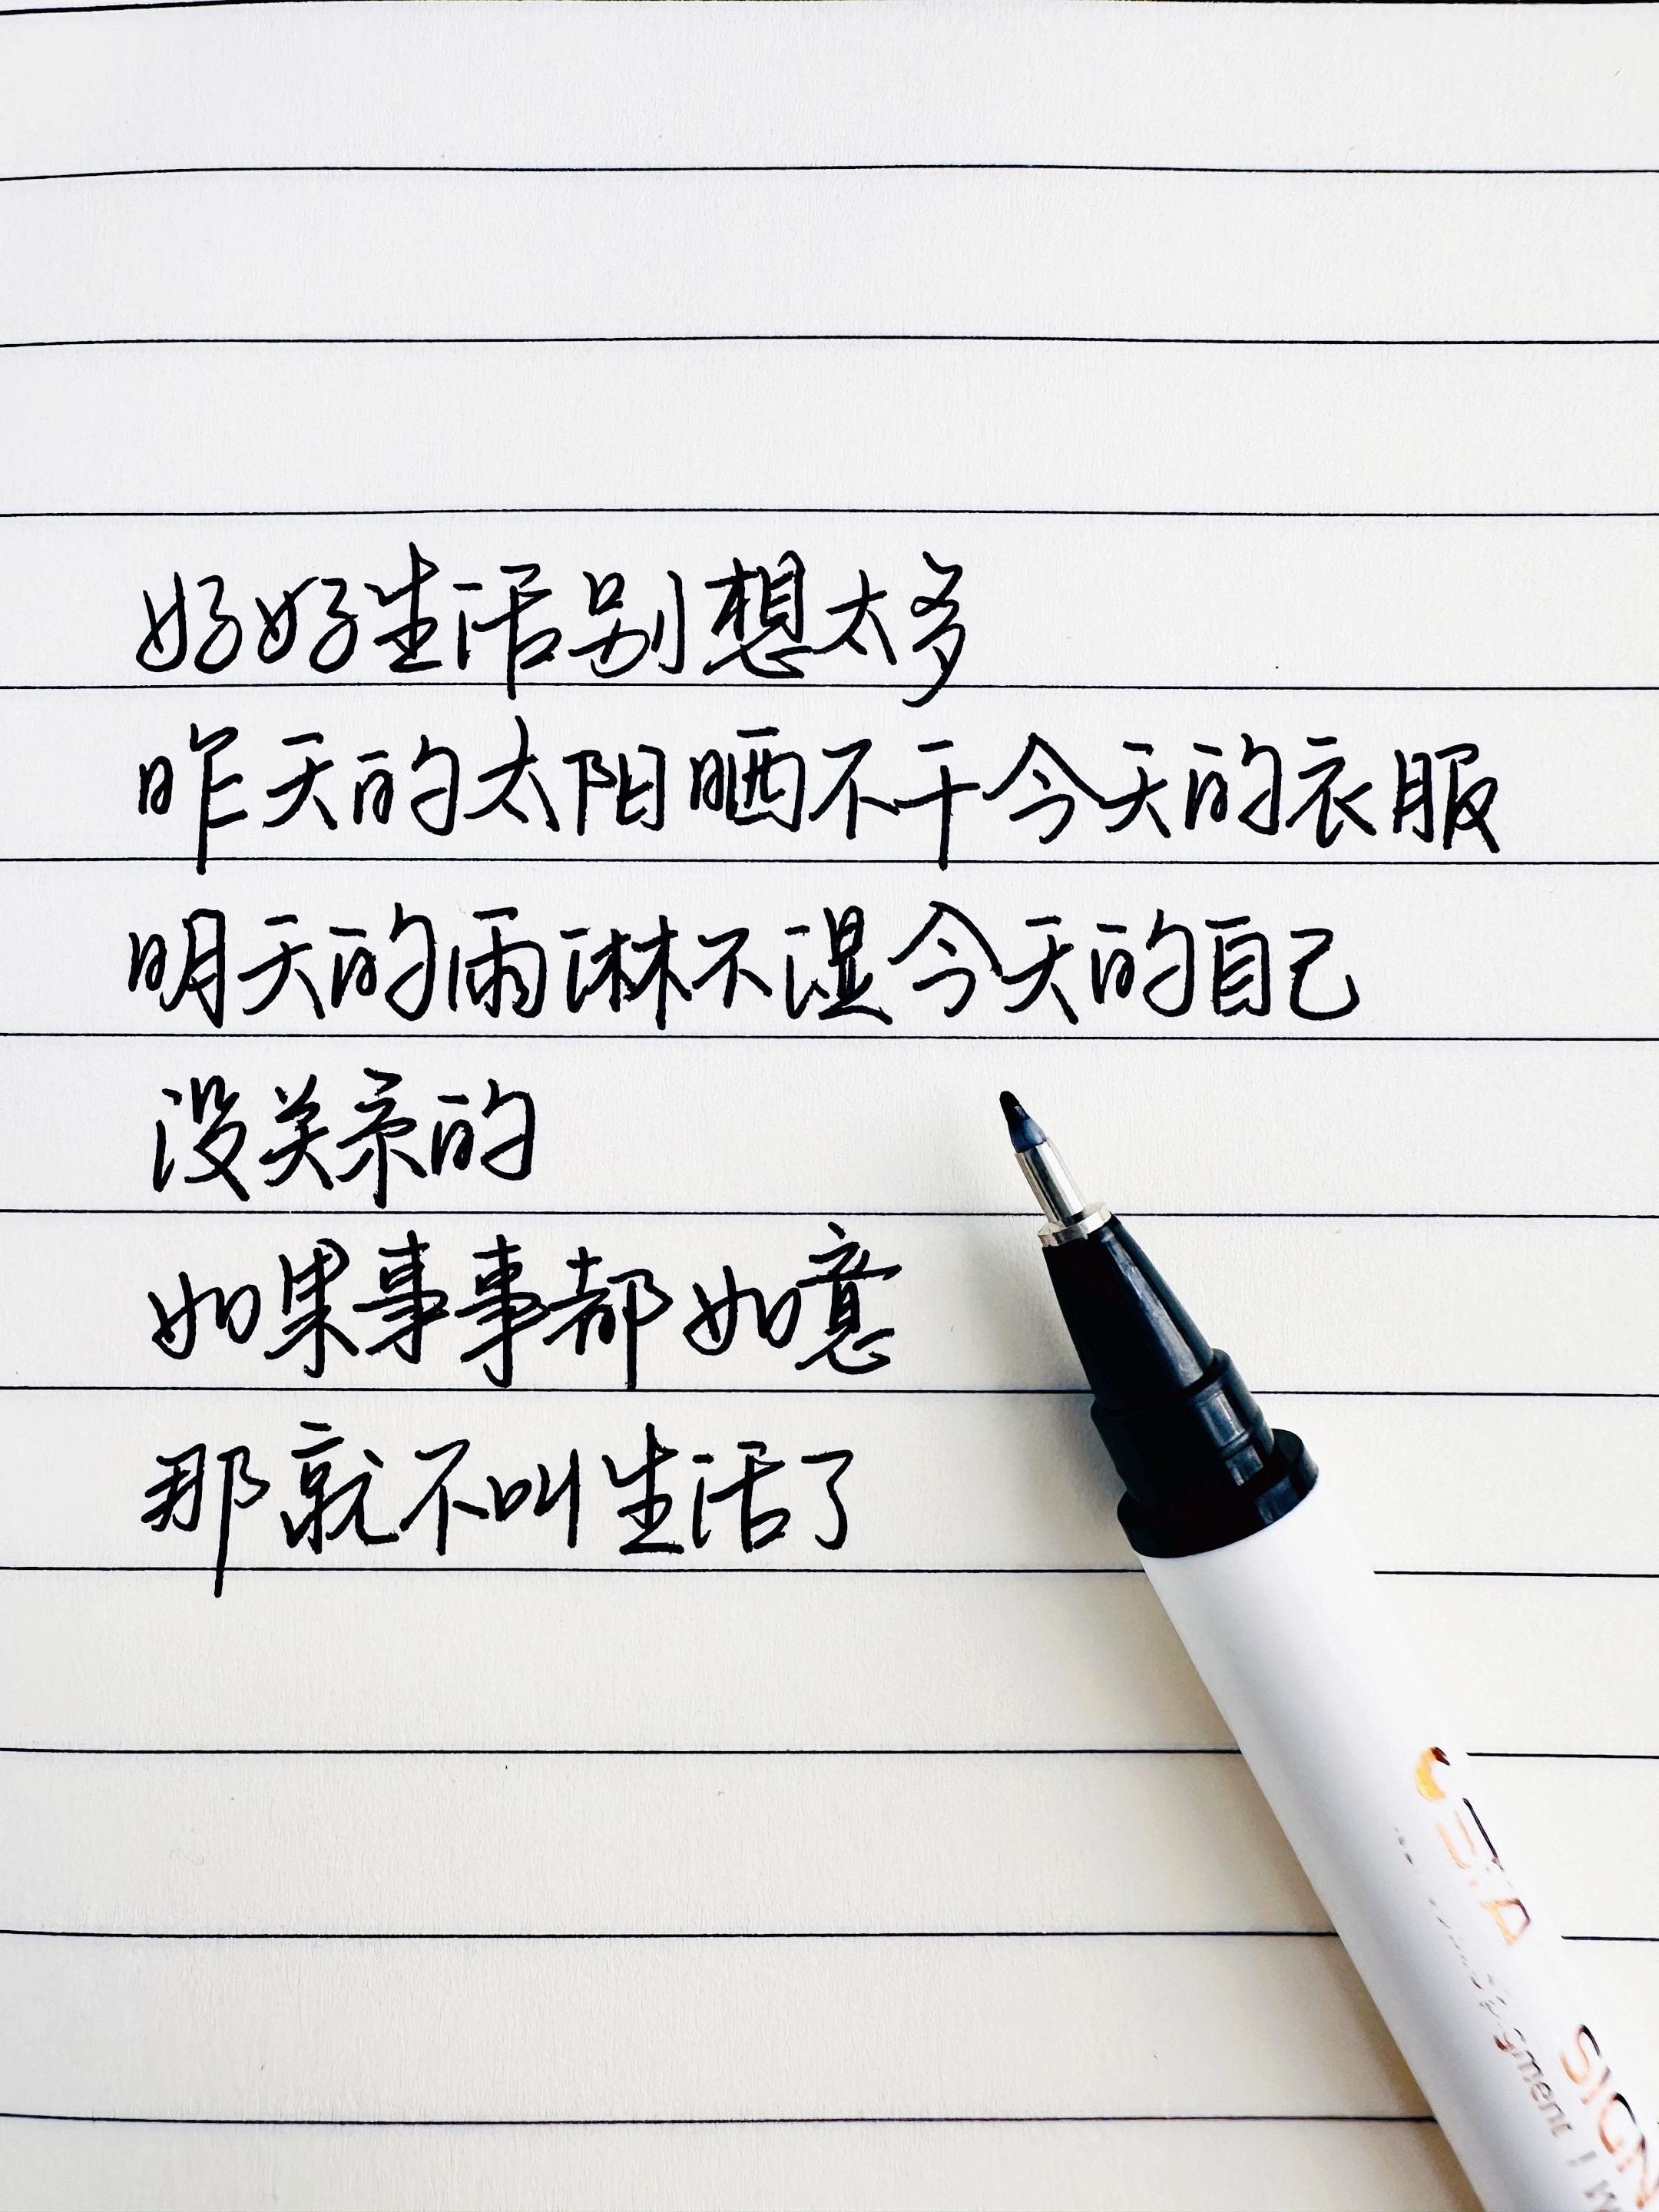 好好生活别想太多
昨天的太阳晒不干今天的衣服
明天的雨淋不湿今天的自己
没关系的
如果事事都如意
那就不叫生活了
SIGN